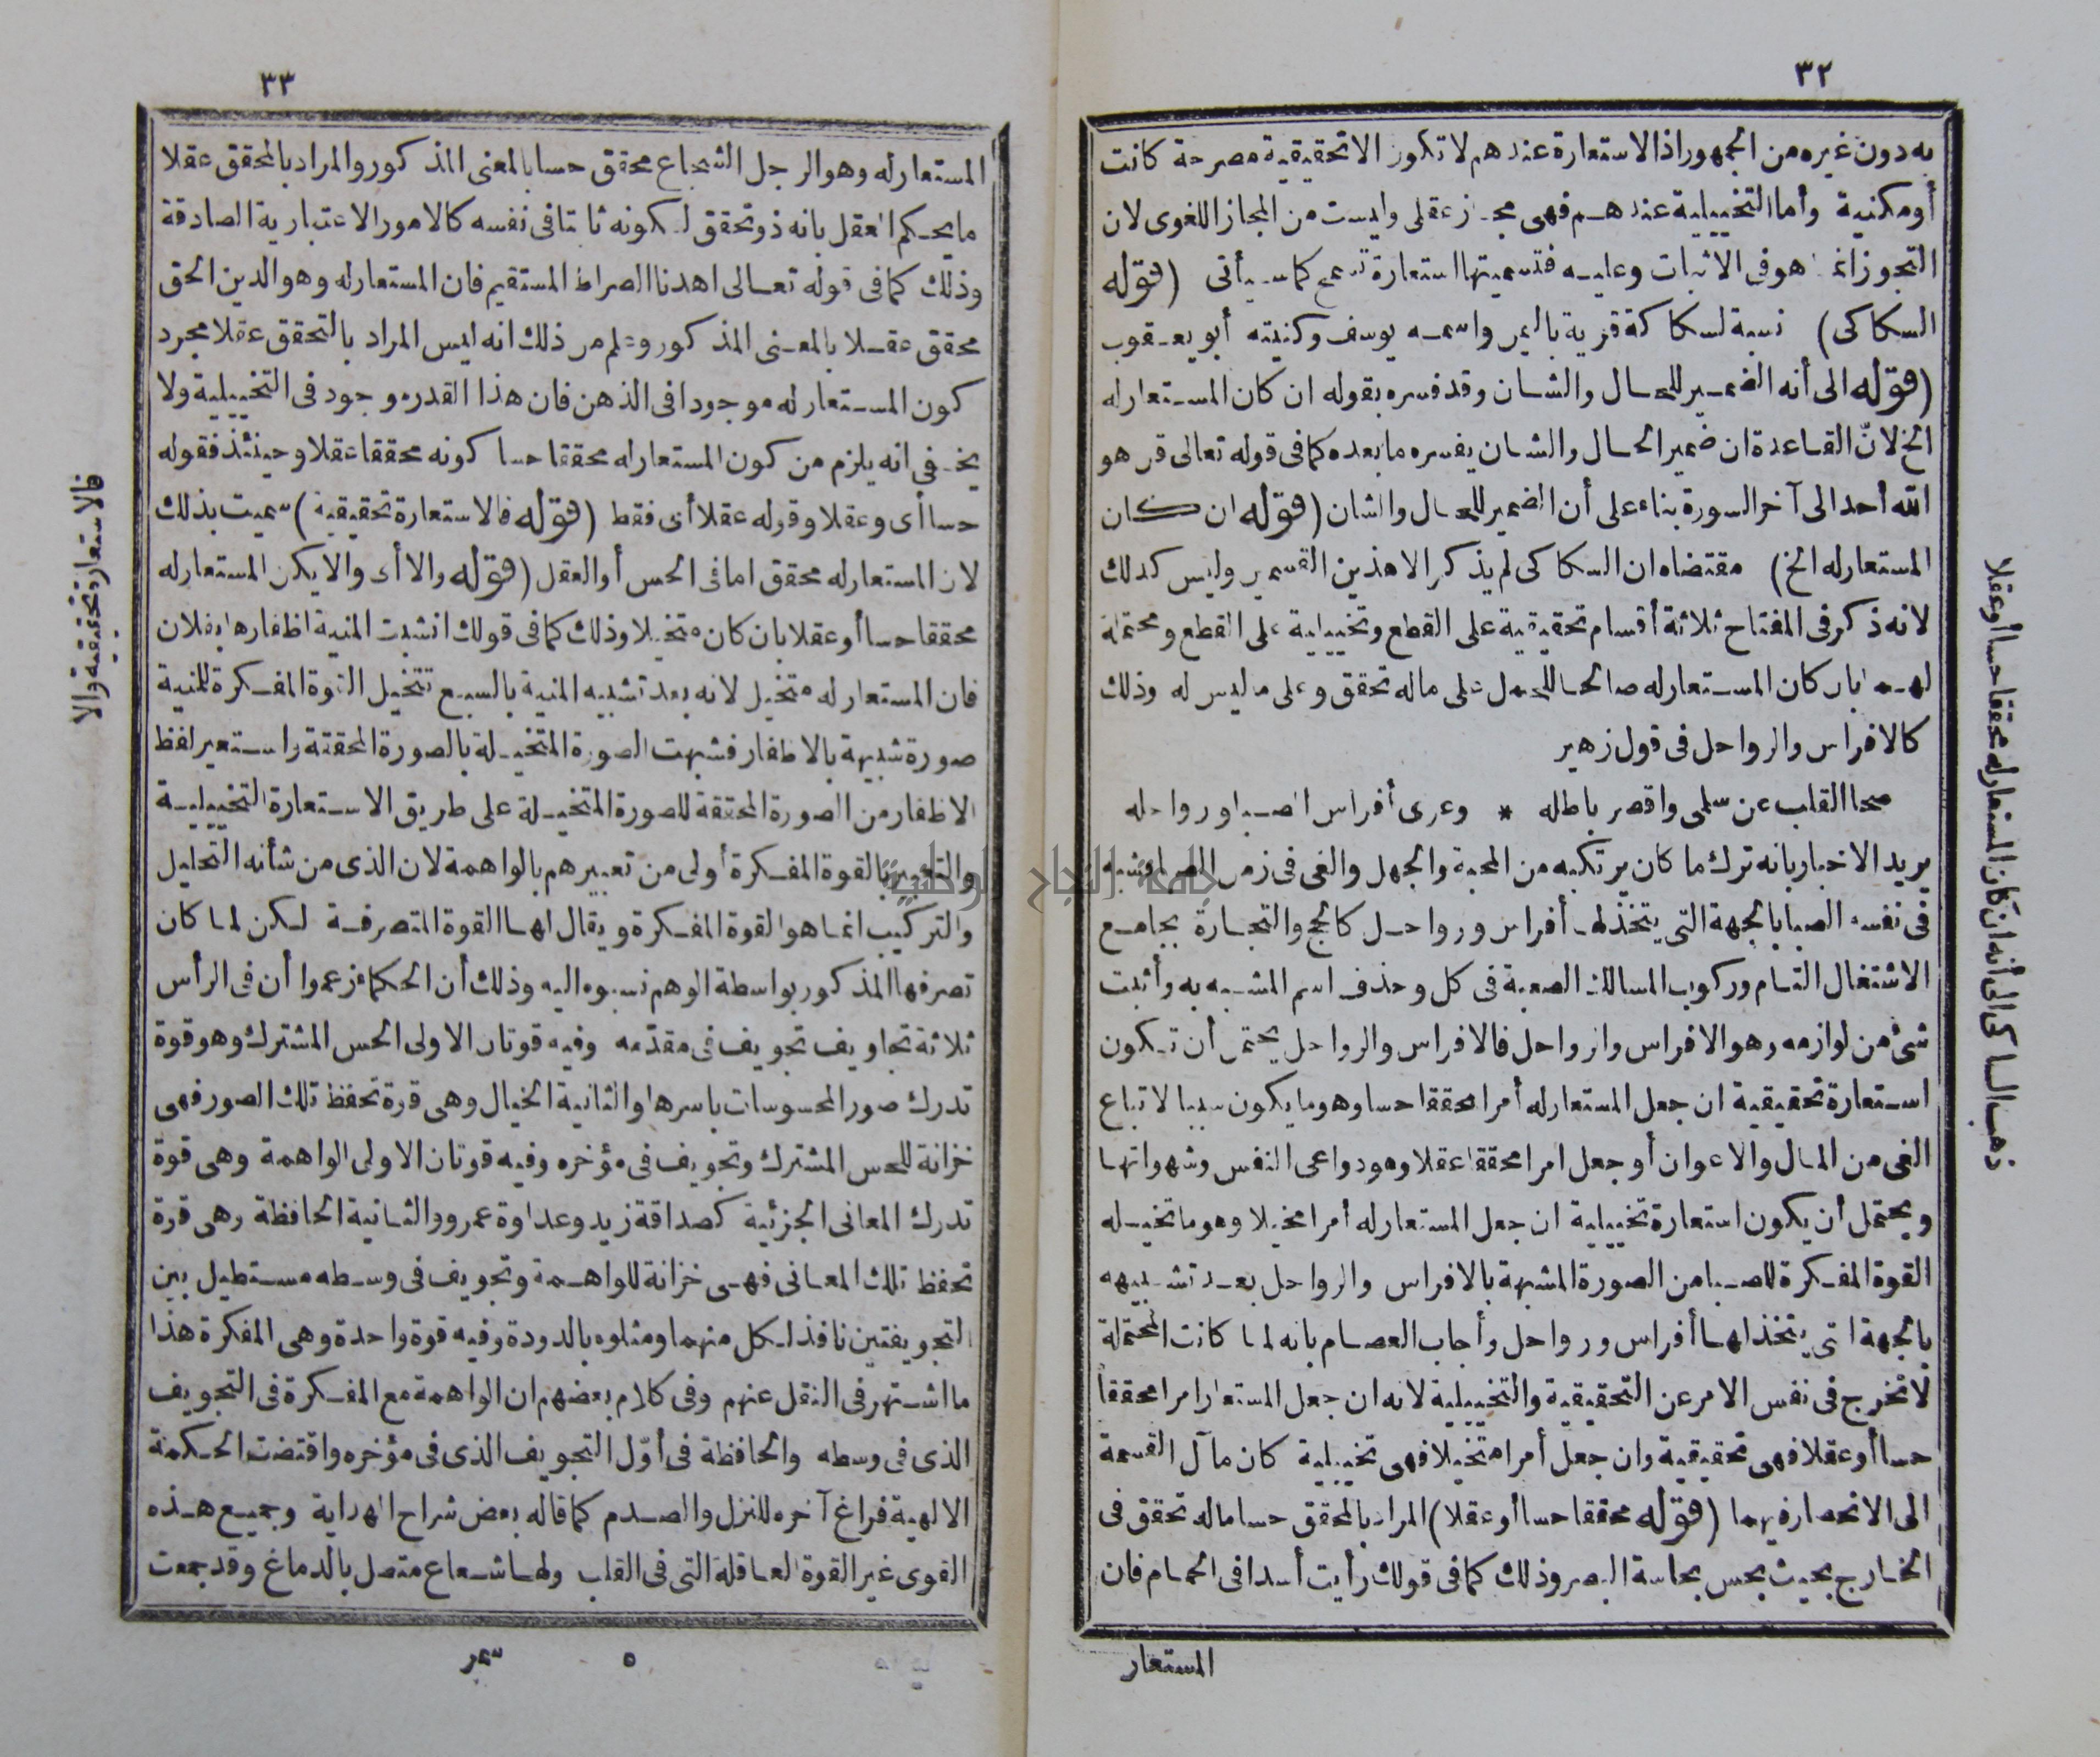 ٣٢
به دون غيره من الجمهور اذ الاستعارة عندهم لا تكون الا تحقيقية مصرحة كانت
أو مكنية وأما التخييلية عندهم فهى مجاز عقلى وليست من المجاز اللغوى لان
التجوز انما هو فى الاثبات وعليه فتسميتها استعارة تسمح كما سيأتى (قوله
السكاكى) نسبة لسكاكة قرية باليمن واسمه يوسف وكنيته أبو يعقوب
(قوله الى أنه الضمير للحال والشان وقد فسره بقوله ان كان المستعار له
الخ لانّ القاعدة ان ضمير الحال والشان يفسره ما بعده كما فى قوله تعالى قل هو
الله أحد الى آخر السورة بناء على أن الضمير للحال والشان (قوله ان كان
المستعار له الخ) مقتضاه ان السكاكى لم يذكر الا هذين القسمين وليس كذلك
لانه ذكر فى المفتاح ثلاثة أقسام تحقيقية على القطع وتخييلية على القطع ومحتملة
لهما بان كان المستعار له صالحا للحمل على ماله تحقق وعلى ما ليس له وذلك
كالافراس والرواحل فى قول زهير
صحا القلب عن سلمى واقصر باطله * وعرى أفراس الصبا ورواحله
يريد الاخبار بانه ترك ما كان يرتكبه من المحبة والجهل والغى فى زمن الصبا وشبه
فى نفسه الصبا بالجهة التى يتخذ لها أفراس ورواحل كالحج والتجارة بجامع
الاشتغال التام وركوب المسالك الصعبة فى كل وحذف اسم المشبه به وأثبت
شئ من لوازمه وهو الافراس والرواحل فالافراس والرواحل يحتمل أن تكون
استعارة تحقيقية ان جعل المستعار له أمرا محققا حسا وهو ما يكون سببا لاتباع
الغى من المال والاعوان أو جعل امرا محققا عقلا وهو دواعى النفس وشهواتها
ويحتمل أن يكون استعارة تخييلية ان جعل المستعار له أمرا مخيلا وهو ما تخيله
القوة المفكرة للصبا من الصورة المشبهة بالافراس والرواحل بعد تشبيهه
بالجهة التى يتخذ لها أفراس ورواحل وأجاب العصام بانه لما كانت المحتملة
لا تخرج فى نفس الامر عن التحقيقية والتخييلية لانه ان جعل المستعار امرا محققا
حسا أو عقلا فهى تحقيقية وان جعل أمرا متخيلا فهى تخييلية كان مآل القسمة
الى الانحصار فيهما (قوله محققا حسا أو عقلا) المراد بالمحقق حسا ماله تحقق فى
الخارج بحيث يحس بحاسة البصر وذلك كما فى قولك رأيت أسدا فى الحمام فان
المستعار
ذهب السكاكى الى أنه ان كان المستعار له محققا حسا أو عقلا
٣٣
المستعار له وهو الرجل الشجاع محقق حسا بالمعنى المذكور والمراد بالمحقق عقلا
ما يحكم العقل بانه ذو تحقق لكونه ثابتا فى نفسه كالامور الاعتبارية الصادقة
وذلك كما فى قوله تعالى اهدنا الصراط المستقيم فان المستعار له وهو الدين الحق
محقق عقلا بالمعنى المذكور وعلم من ذلك انه ليس المراد بالتحقق عقلا مجرد
كون المستعار له موجودا فى الذهن فان هذا القدر موجود فى التخييلية ولا
يخفى انه يلزم من كون المستعار له محققا حسا كونه محققا عقلا وحينئذ فقوله
حسا أى وعقلا وقوله عقلا أى فقط (قوله فالاستعارة تحقيقية) سميت بذلك
لان المستعار له محقق اما فى الحس أو العقل (قوله والا أى والا يكن المستعار له
محققا حسا أو عقلا بان كان متخيلا وذلك كما فى قولك انشبت المنية اظفارها بفلان
فان المستعار له متخيل لانه بعد تشبيه المنية بالسبع تتخيل القوة المفكرة للمنية
صورة شبيهة بالاظفار فشبهت الصورة المتخيلة بالصورة المحققة واستعير لفظ
الاظفار من الصورة المحققة للصورة المتخيلة على طريق الاستعارة التخييلية
والتعبير بالقوة المفكرة أولى من تعبيرهم بالواهمة لان الذى من شأنه التحليل
والتركيب انما هو القوة المفكرة ويقال لها القوة المتصرفة لكن لما كان
تصرفها المذكور بواسطة الوهم نسبوه اليه وذلك أن الحكماء زعموا أن فى الرأس
ثلاثة تجاويف تجويف فى مقدّمه وفيه قوتان الاولى الحس المشترك وهو قوة
تدرك صور المحسوسات باسرها والثانية الخيال وهى قوة تحفظ تلك الصور فهى
خزانة للحس المشترك وتجويف فى مؤخره وفيه قوتان الاولى الواهمة وهى قوة
تدرك المعانى الجزئية كصداقة زيد وعداوة عمرو والثانية الحافظة وهى قوة
تحفظ تلك المعانى فهى خزانة للواهمة وتجويف فى وسطه مستطيل بين
التجويفتين نافذا لكل منهما ومثلوه بالدودة وفيه قوة واحدة وهى المفكرة هذا
ما اشتهر فى النقل عنهم وفى كلام بعضهم ان الواهمة مع المفكرة فى التجويف
الذى فى وسطه والحافظة فى أوّل التجويف الذى فى مؤخره واقتضت الحكمة
الالهية فراغ آخره للنزل والصدم كما قاله بعض شراح الهداية وجميع هذه
القوى غير القوة العاقلة التى فى القلب ولها شعاع متصل بالدماغ وقد جمعت
٥ سمر
فالاستعارة تحقيقية والا
جامعة النجاح الوطنية